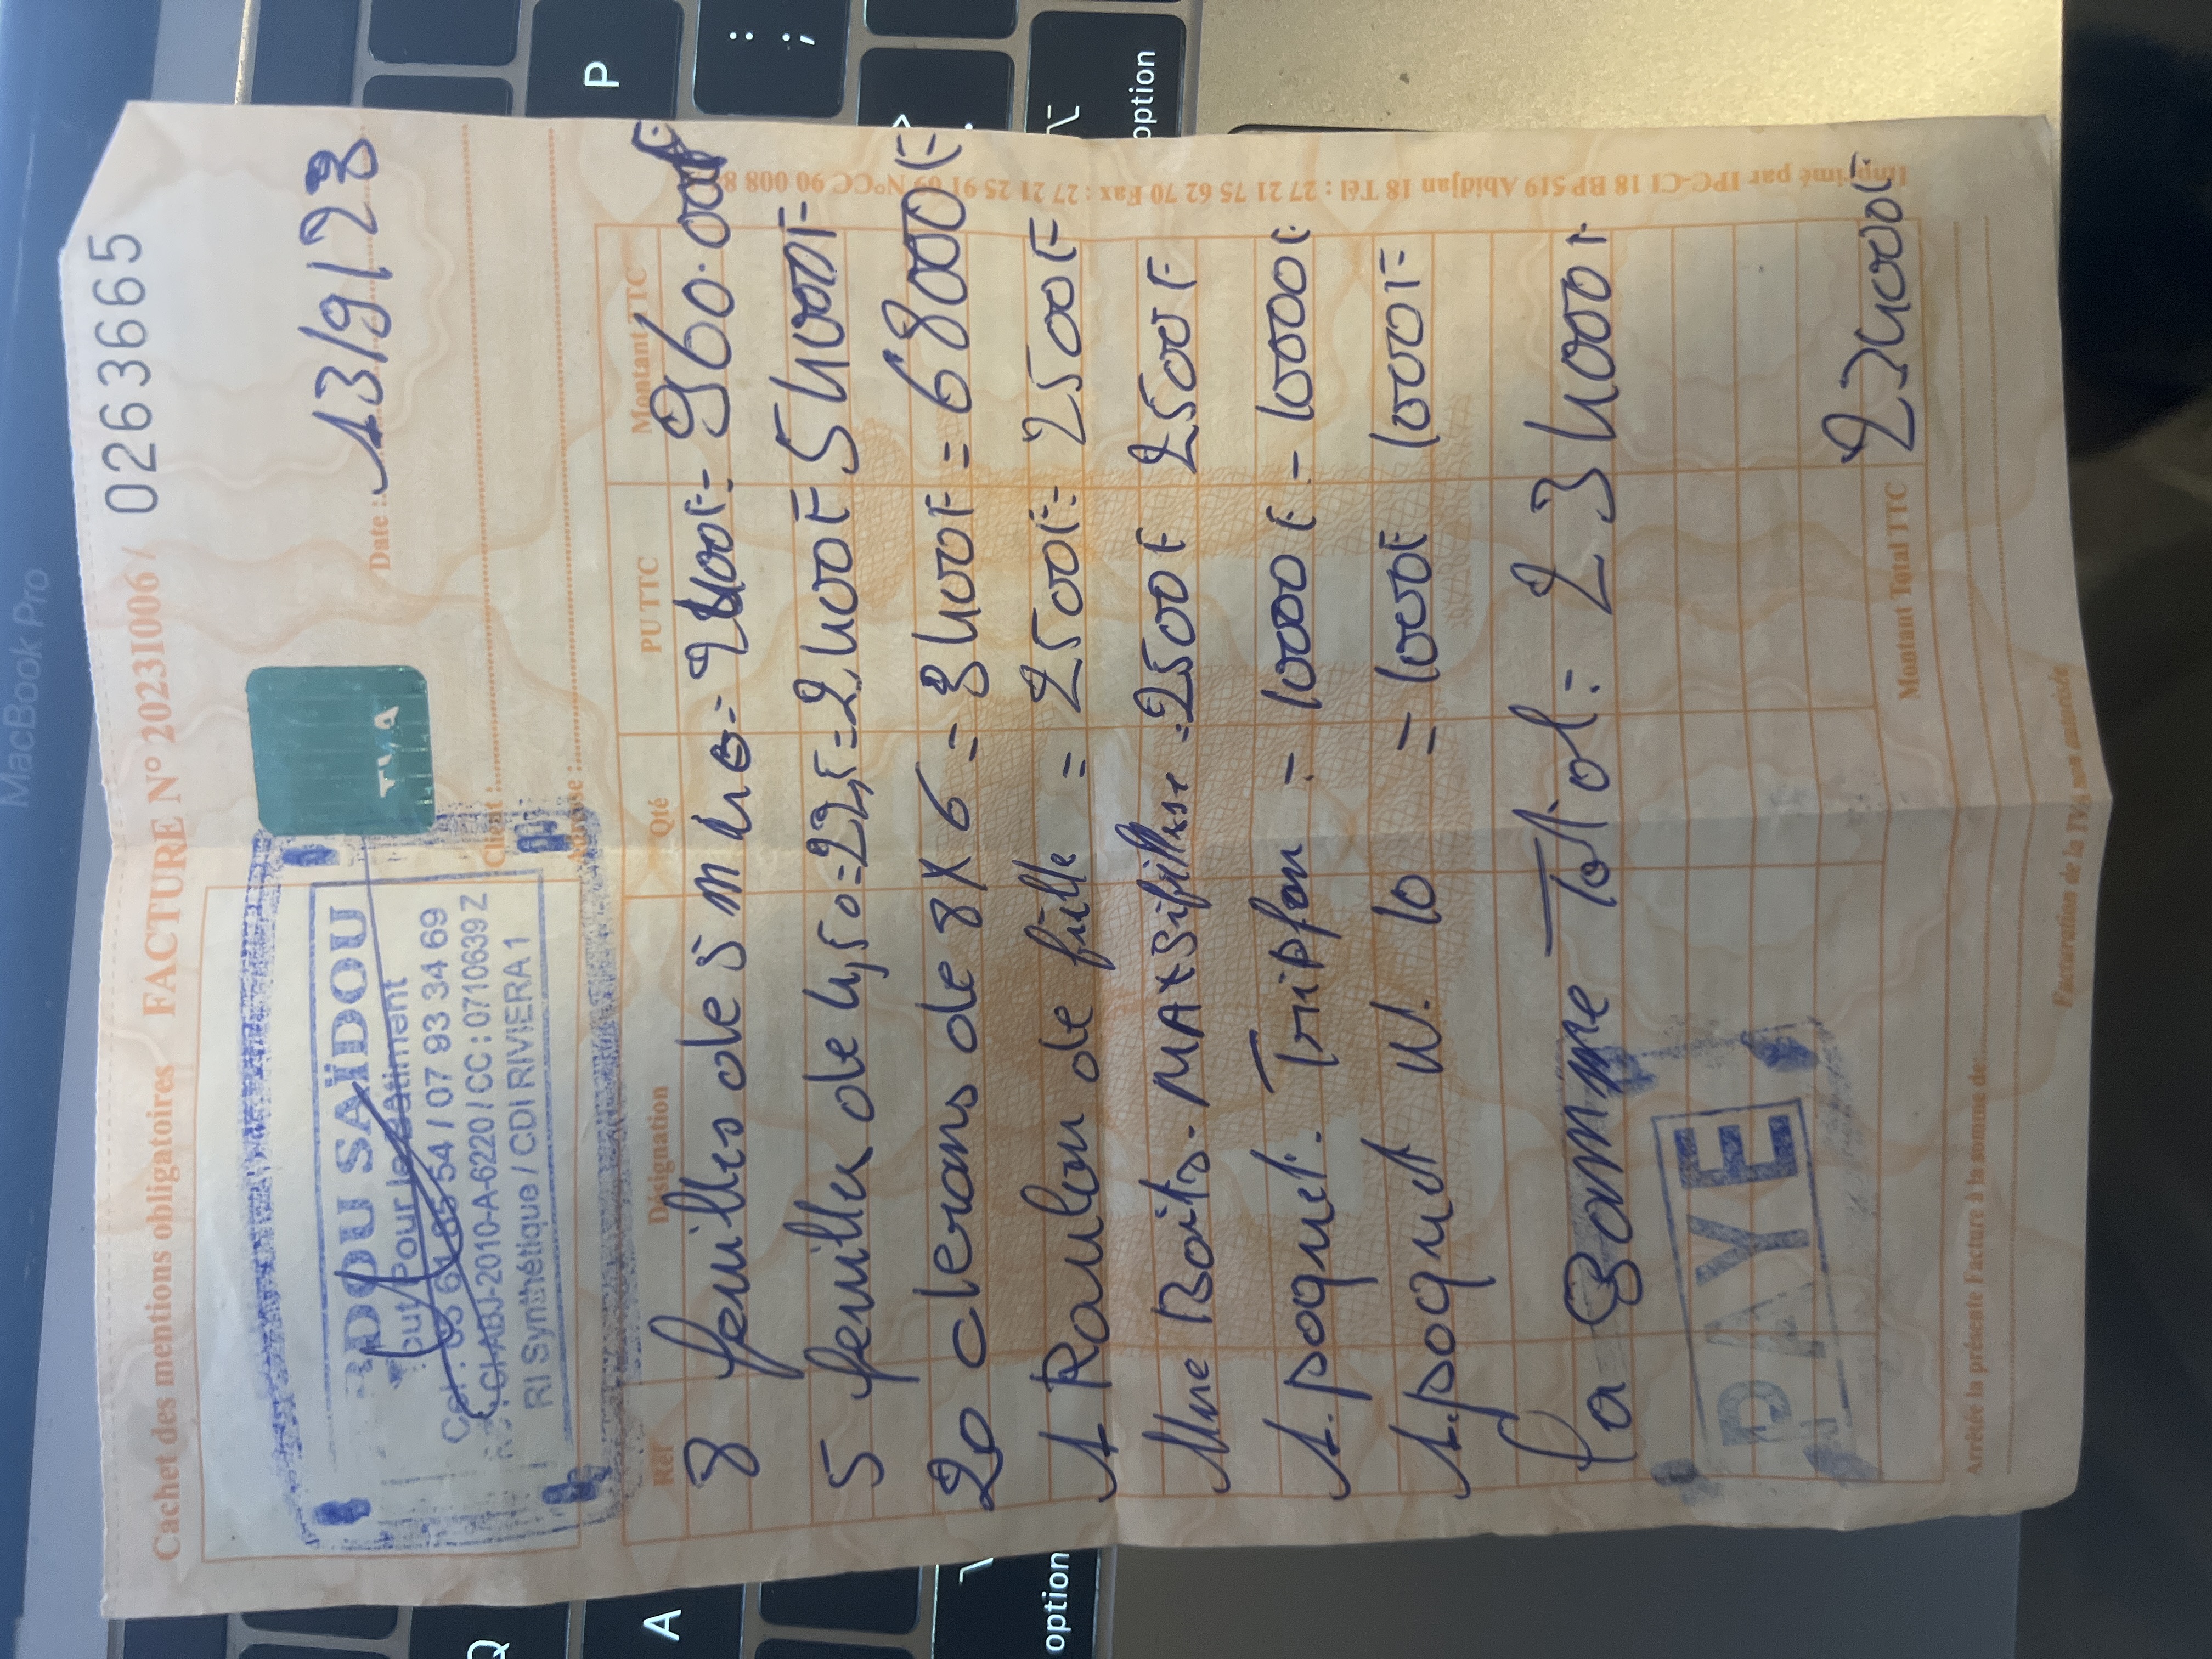 MacBook Pro
Cachet des mentions obligatoires FACTURE N° 2023I006 / 0263665
DOU SAÏDOU
out Pour le Bâtiment
Cel : 05 61 85 54 / 07 93 34 69
CI-ABJ-2010-A-6220 / CC : 0710639 Z
RI Synthétique / CDI RIVIERA 1
Date : 13/9/23
Client :
Adresse :
Réf Désignation Qté PU TTC Montant TTC
8 feuilles de 5 m 40 = 2400F = 960.000F
5 feuilles de 4,50 = 22,5 = 2,400F 54000F
20 cherons de 8X6 = 3400F = 68000F
1 Roulon de fulle = 2500F = 2500F
Une Boits - = 2500F 2500F
1. poquet. = 10000F - 10000F
1. poquet N. 10 = 1000F 1000F
la somme Total = 234000F
PAYE
Montant Total TTC 234000F
Arrêtée la présente Facture à la somme de:
Facturation de la TVA non autorisée
Imprimé par IPC-CI 18 BP 519 Abidjan 18 Tél : 27 21 75 62 70 Fax : 27 21 25 91 69 N°CC 90 008 8
Q
A
option
P
:
;
>
.
option